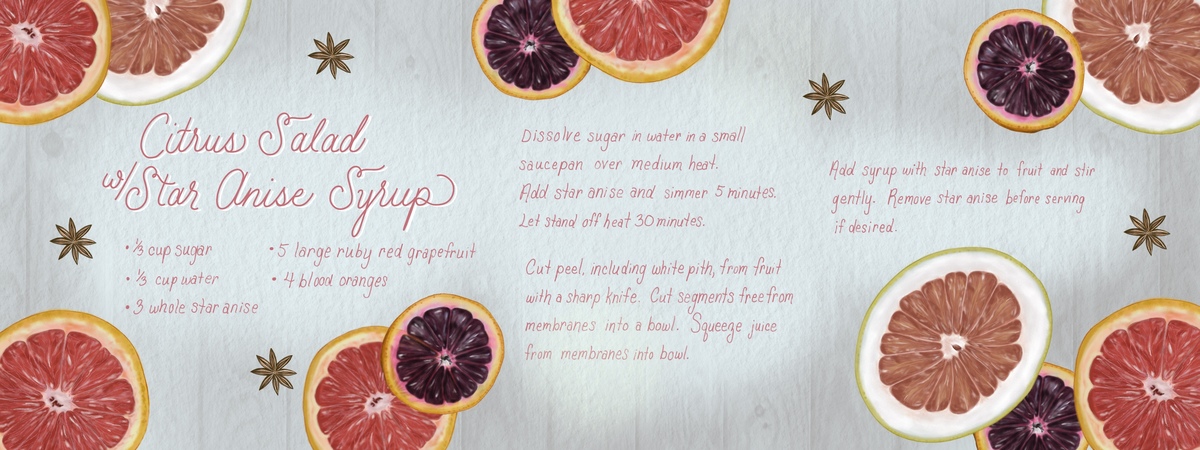 Citrus Salad
w/Star Anise Syrup
• ⅓ cup sugar
• ⅓ cup water
• 3 whole star anise
• 5 large ruby red grapefruit
• 4 blood oranges
Dissolve sugar in water in a small
saucepan over medium heat.
Add star anise and simmer 5 minutes.
Let stand off heat 30 minutes.
Cut peel, including white pith, from fruit
with a sharp knife. Cut segments free from
membranes into a bowl. Squeeze juice
from membranes into bowl.
Add syrup with star anise to fruit and stir
gently. Remove star anise before serving
if desired.